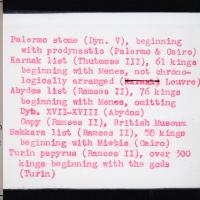 Palermo stone (Dyn. V), beginning
with predynastic (Palermo & Cairo)
Karnak list (Thutmose III), 61 kings
beginning with Menes, not chrono-
logically arranged (Louvre)
Abydos list (Ramses II), 76 kings
beginning with Menes, omitting
Dyn. XVII-XVIII (Abydos)
Copy (Ramses II), British Museum
Sakkara list (Ramses II), 58 kings
beginning with Miebis (Cairo)
Turin papyrus (Ramses II), over 300
kings beginning with the gods
(Turin)